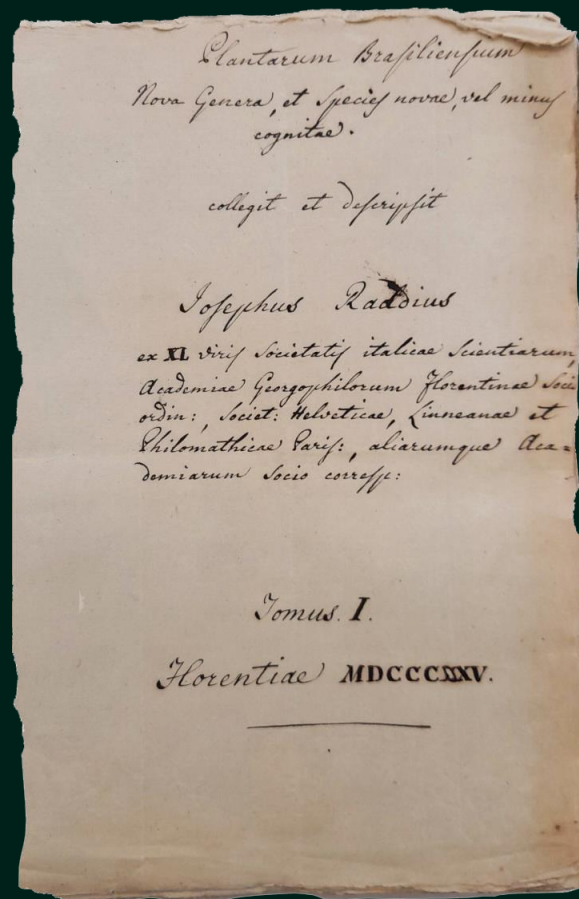 Plantarum Brasiliensium
Nova Genera, et Species novae, vel minus
cognitae.
collegit et descripsit
Josephus Raddius
ex XL viris Societatis italicae Scientiarum,
Academiae Georgophilorum Florentinae Socio
ordin:, Societ: Helveticae, Linneanae et
Philomathicae Paris:, aliarumque Aca=
demiarum Socio corresp:
Tomus. I.
Florentiae MDCCCXXV.